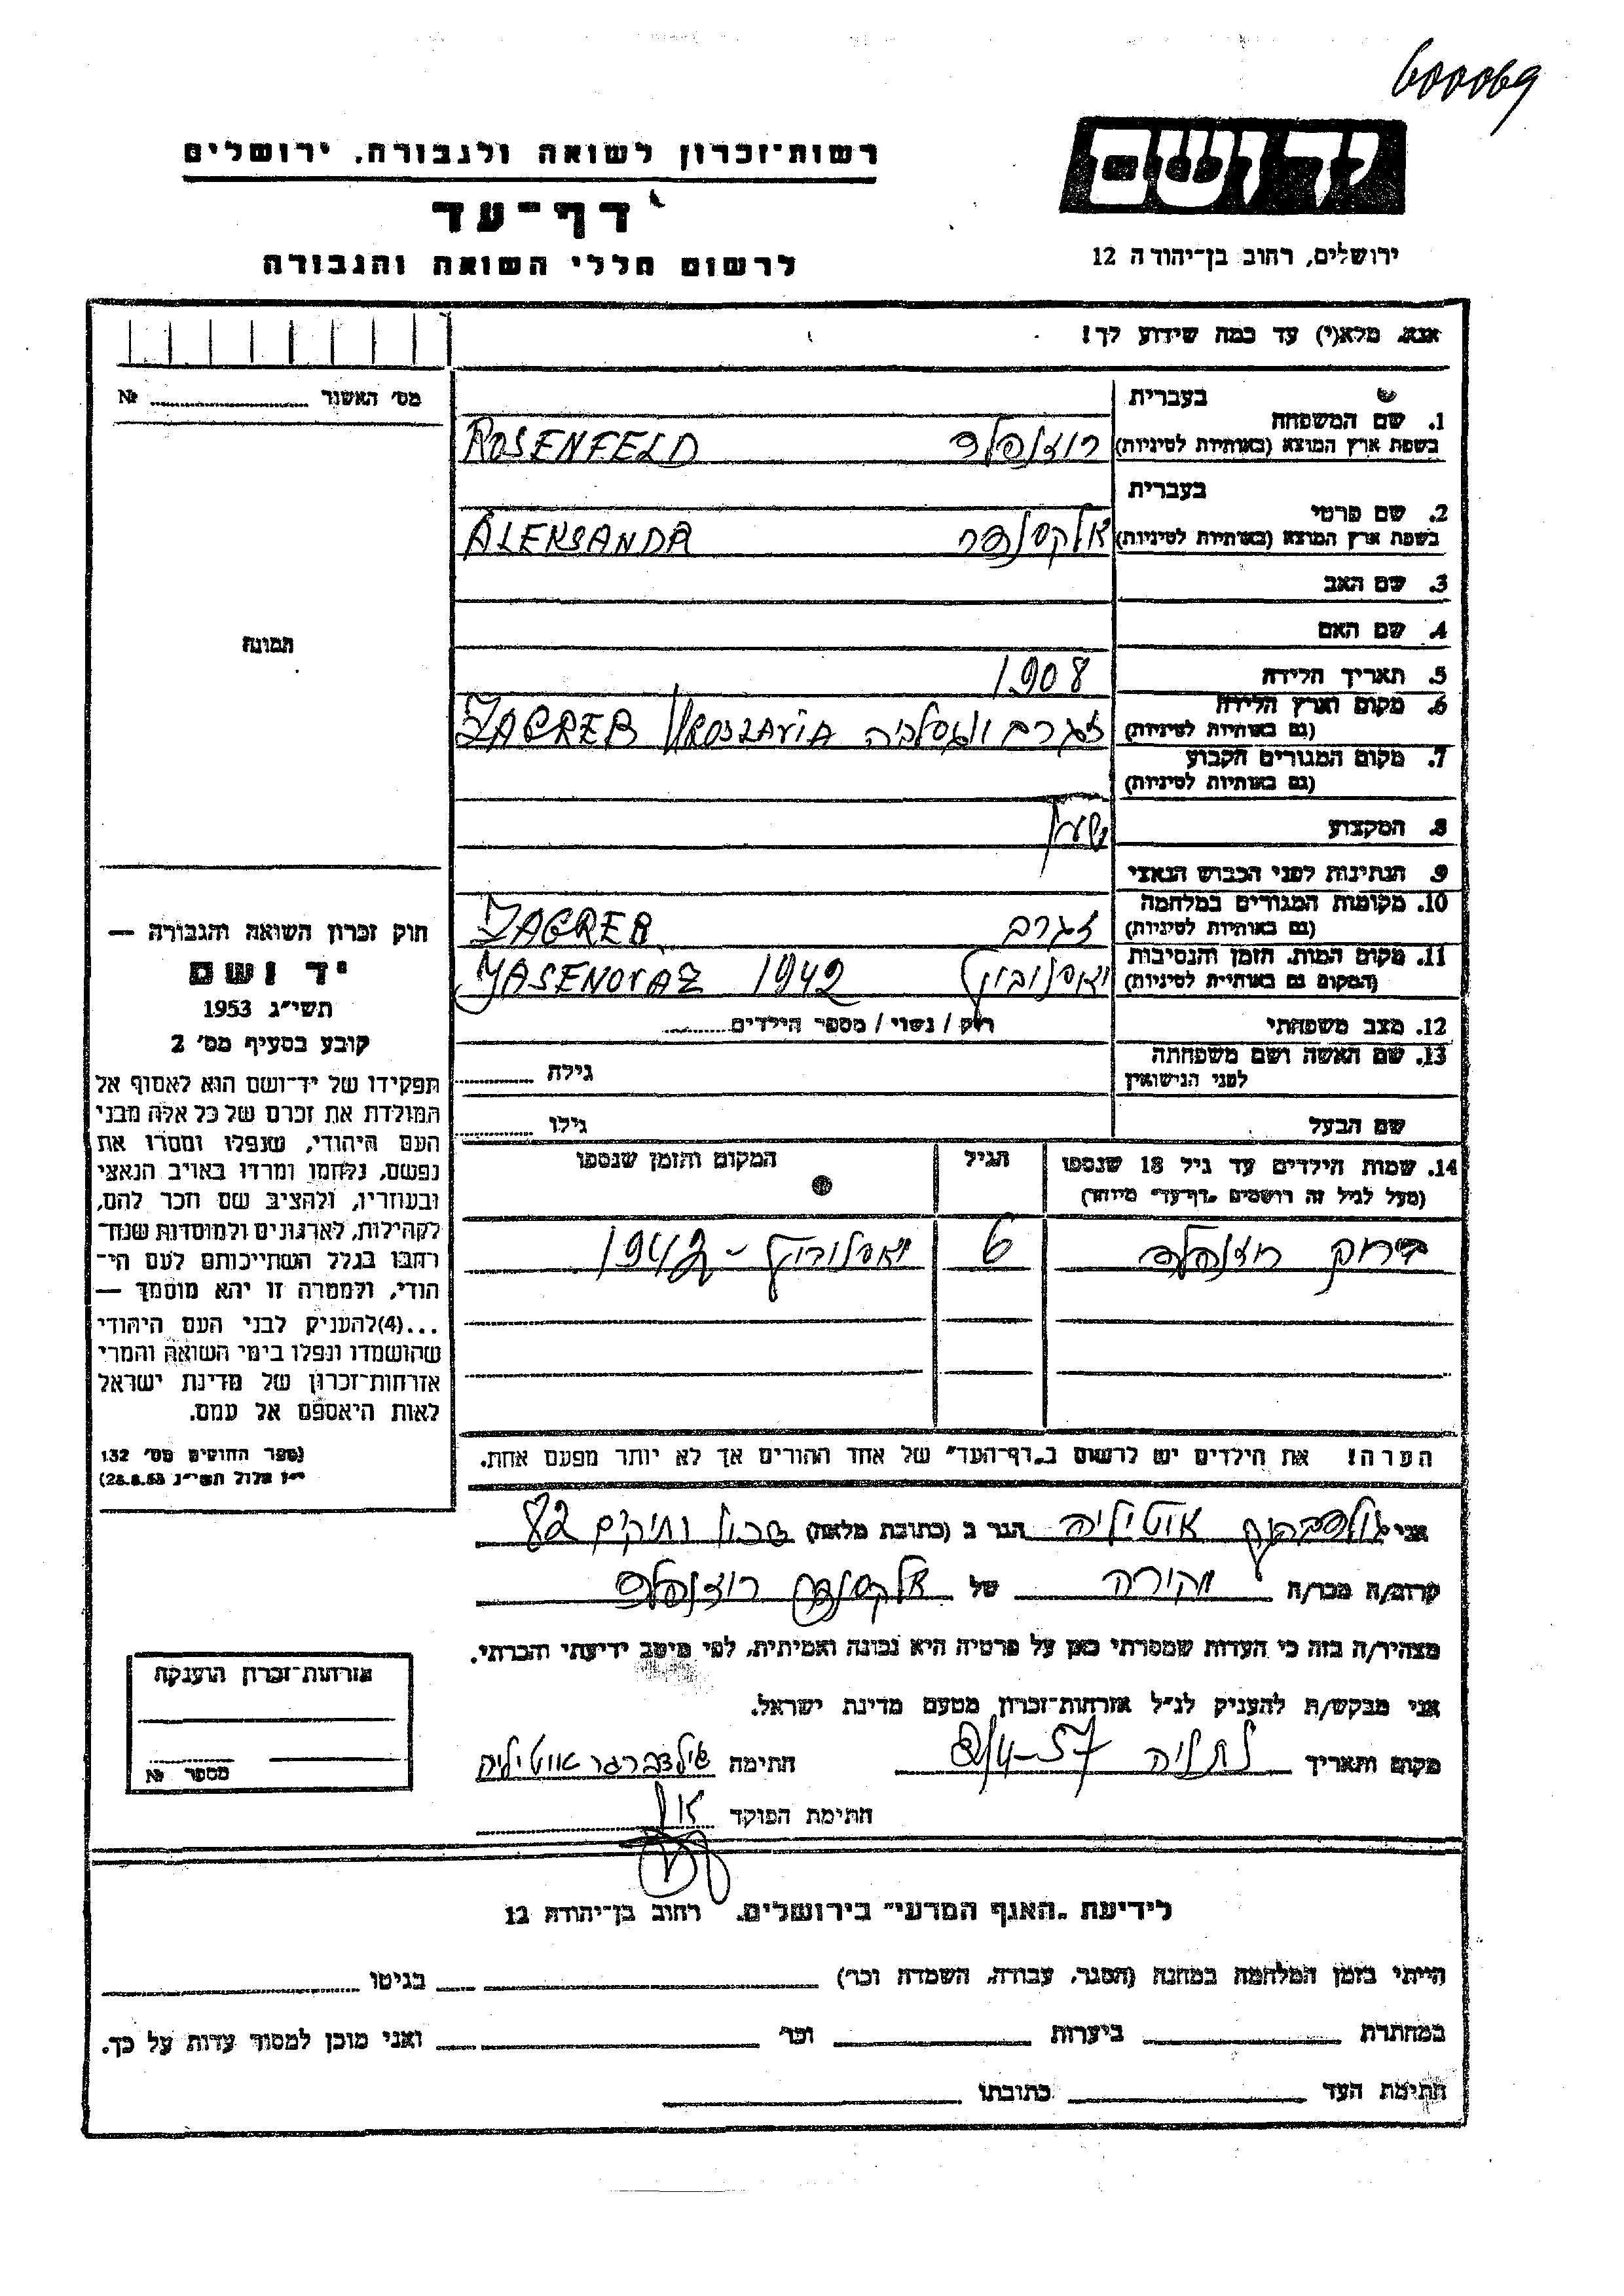 600069
יד ושם
רשות־זכרון לשואה ולגבורה, ירושלים
דף־עד
לרשום חללי השואה והגבורה
ירושלים, רחוב בן־יהודה 12
אנא, מלא(י) עד כמה שידוע לך!
מס׳ האשור № ........
בעברית
1. שם המשפחה
בשפת ארץ המוצא (באותיות לטיניות) רוזנפלד ROSENFELD
בעברית
2. שם פרטי
בשפת ארץ המוצא (באותיות לטיניות) אלקסנדר ALEKSANDA
3. שם האב
4. שם האם
תמונה
5. תאריך הלידה 1908
6. מקום וארץ הלידה
(גם באותיות לטיניות) זגרב יוגוסלביה ZAGREB
7. מקום המגורים הקבוע
(גם באותיות לטיניות)
8. המקצוע
9. הנתינות לפני הכבוש הנאצי
10. מקומות המגורים במלחמה
(גם באותיות לטיניות) זגרב ZAGREB
11. מקום המות, הזמן והנסיבות
(המקום גם באותיות לטיניות) יאסנובץ JASENOVAZ 1942
12. מצב משפחתי רוק / נשוי / מספר הילדים........
13. שם האשה ושם משפחתה
לפני הנישואין גילה ........
שם הבעל גילו ........
14. שמות הילדים עד גיל 18 שנספו
(מעל לגיל זה רושמים „דף־עד” מיוחד)
הגיל
המקום והזמן שנספו
רוזנפלד 6 יאסנובץ – 1942
הערה! את הילדים יש לרשום ב„דף־העד” של אחד ההורים אך לא יותר מפעם אחת.
חוק זכרון השואה והגבורה —
יד ושם
תשי״ג 1953
קובע בסעיף מס׳ 2
תפקידו של יד־ושם הוא לאסוף אל
המולדת את זכרם של כל אלה מבני
העם היהודי, שנפלו ומסרו את
נפשם, נלחמו ומרדו באויב הנאצי
ובעוזריו, ולהציב שם וזכר להם,
לקהילות, לארגונים ולמוסדות שנח־
רבו בגלל השתייכותם לעם הי־
הודי, ולמטרה זו יהא מוסמך —
...(4)להעניק לבני העם היהודי
שהושמדו ונפלו בימי השואה והמרי
אזרחות־זכרון של מדינת ישראל
לאות היאספם אל עמם.
(ספר החוקים מס׳ 132
י״ז אלול תשי״ג 28.8.53)
אני גולדברגר אוטיליה הגר ב (כתובת מלאה) ותיקים 82
קרוב/ה מכר/ה מכירה של אלקסנדר רוזנפלד
מצהיר/ה בזה כי העדות שמסרתי כאן על פרטיה היא נכונה ואמיתית, לפי מיטב ידיעתי והכרתי.
אני מבקש/ת להעניק לנ״ל אזרחות־זכרון מטעם מדינת ישראל.
מקום ותאריך נתניה 57 חתימה גולדברגר אוטיליה
חתימת הפוקד
אזרחות־זכרון הוענקה
מספר №
לידיעת „האגף המדעי” בירושלים, רחוב בן־יהודה 12
הייתי בזמן המלחמה במחנה (הסגר, עבודה, השמדה וכו׳) בגיטו
במחתרת ביערות וכו׳ ואני מוכן למסור עדות על כך.
חתימת העד כתובתו